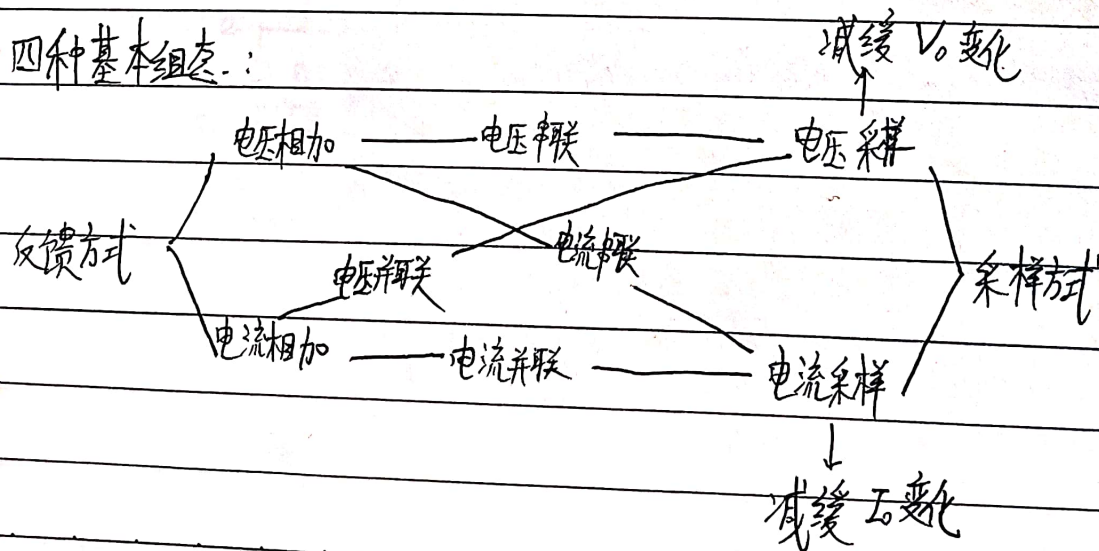 四种基本组态:
减缓 V₀变化
电压相加 电压串联 电压采样
反馈方式 电压并联 电流串联 采样方式
电流相加 电流并联 电流采样
减缓 I₀变化